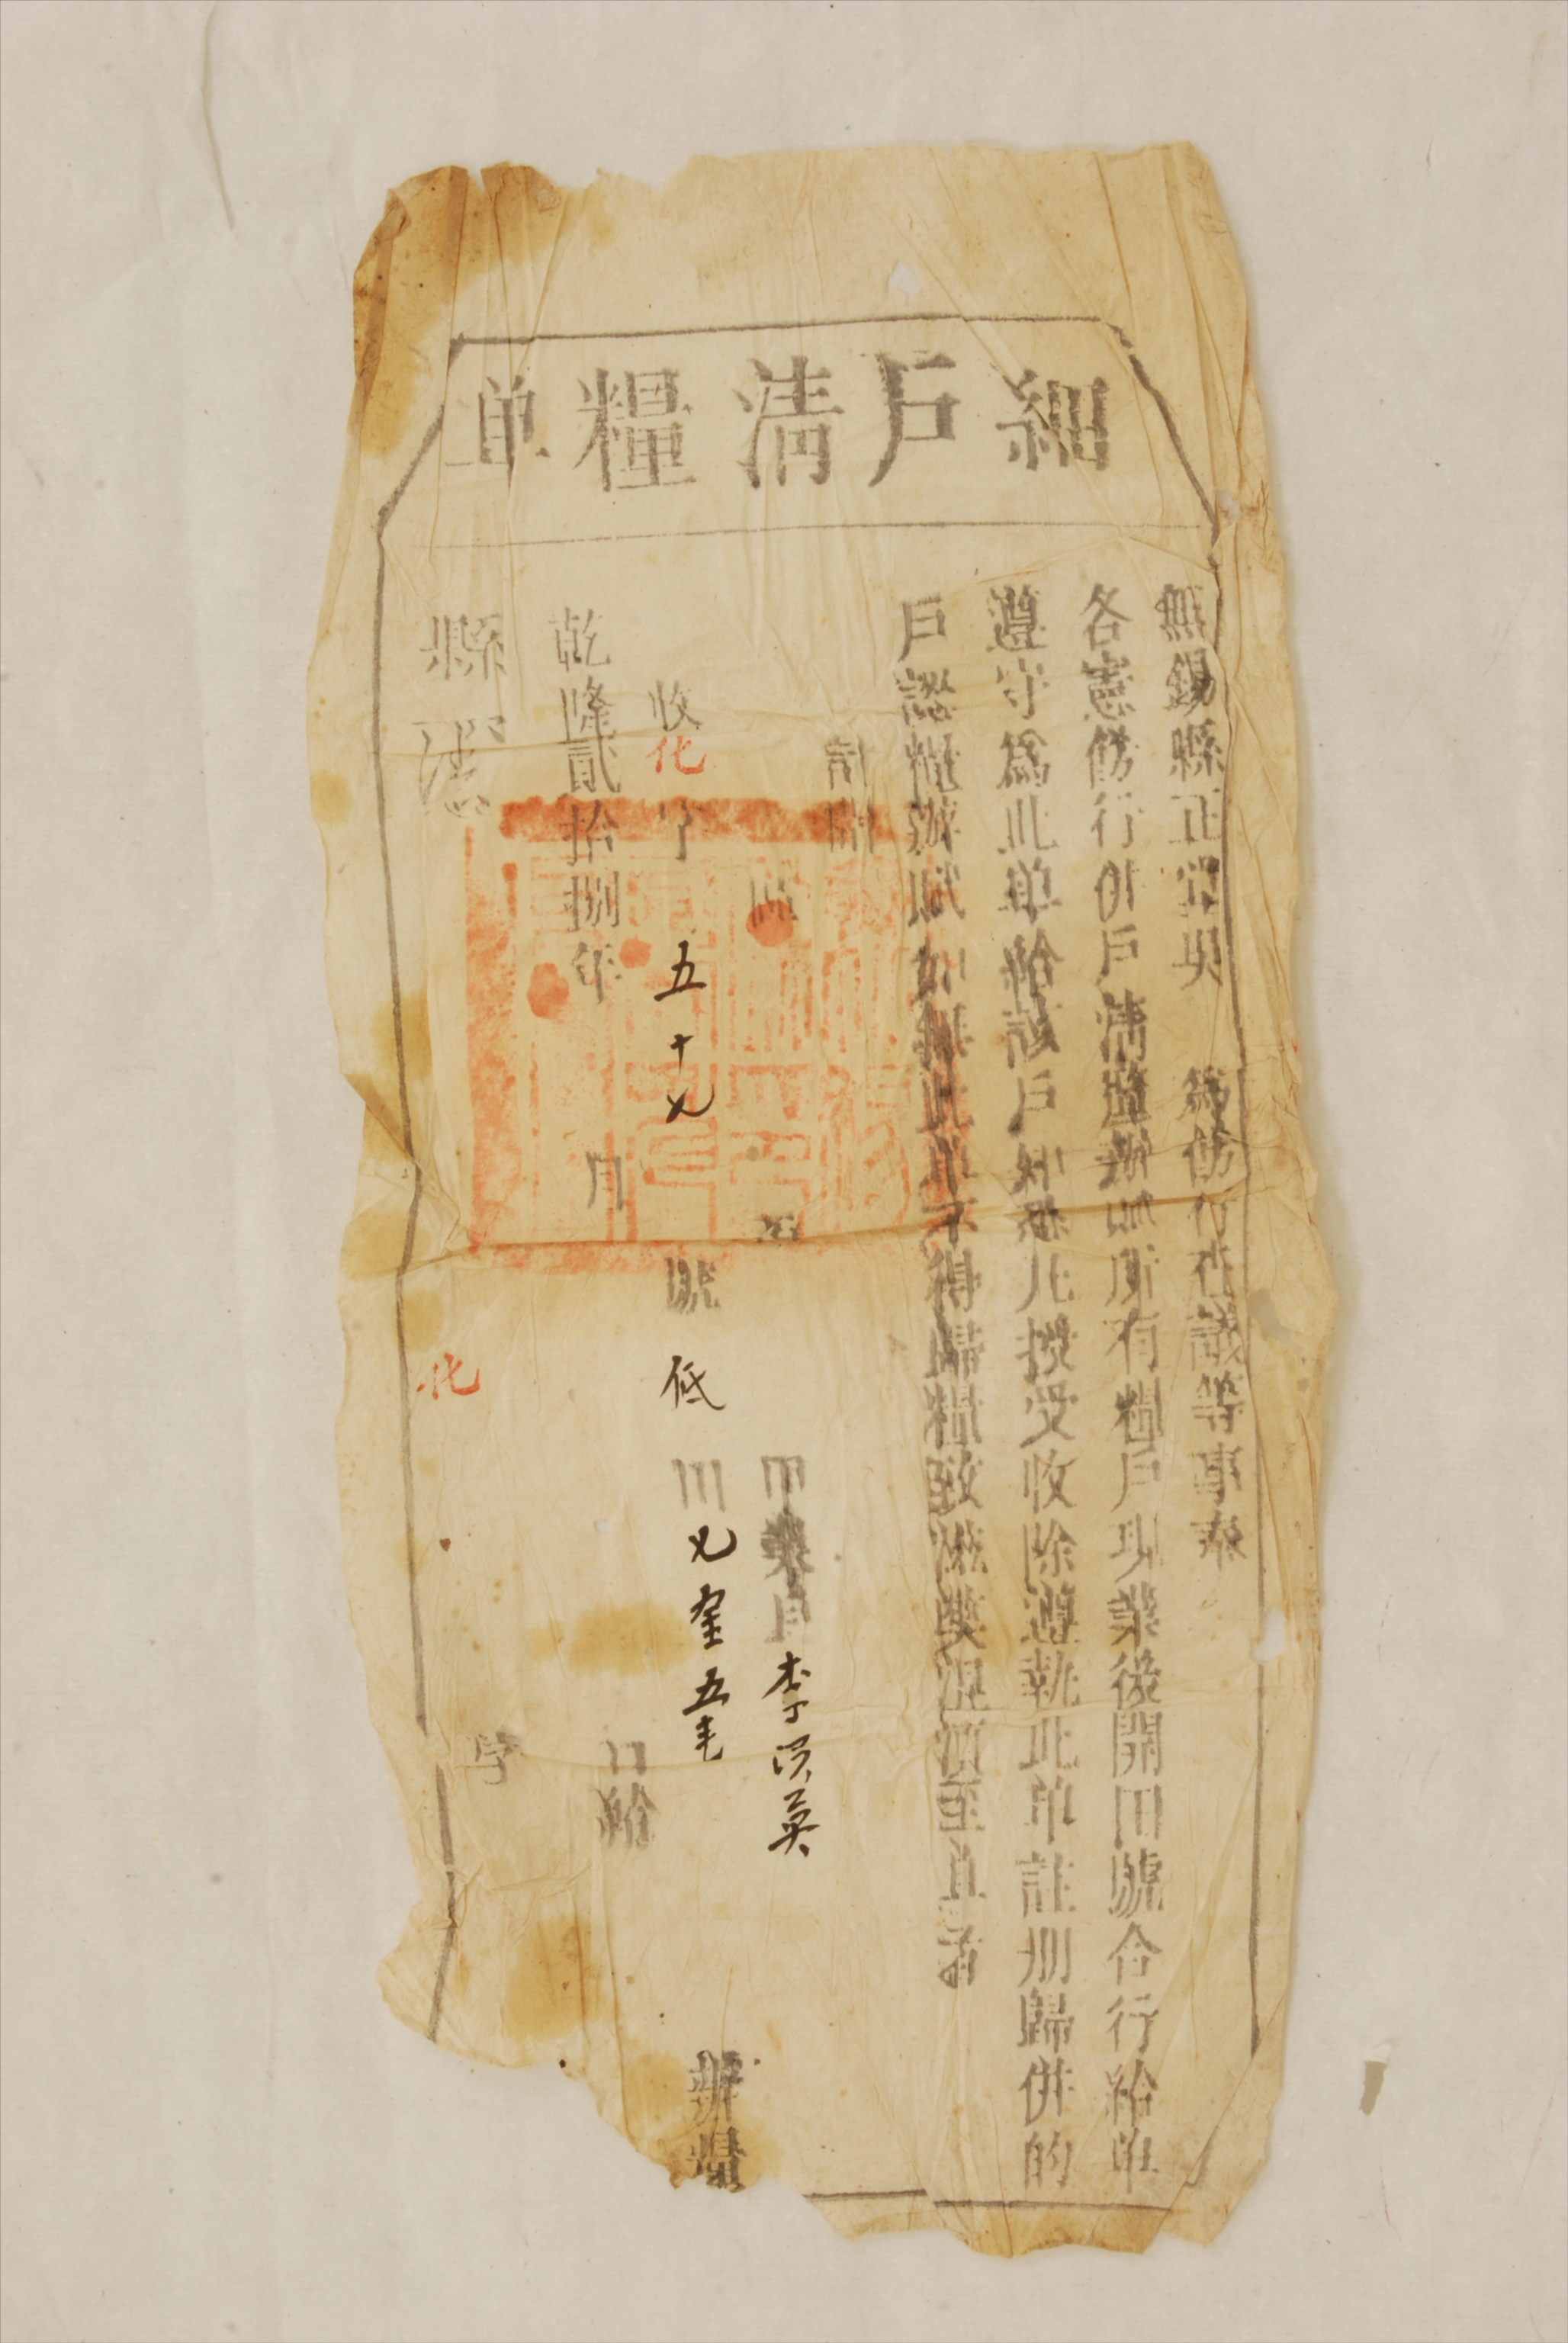 細戶清糧单
無錫縣正堂吳 為飭行在議等事奉
各憲飭行併戶清糧辦賦所有糧戶現業後開田號合行給单
遵守為此单給該戶知悉凡授受收除遵執此单註册歸併的
戶認糧辦賦如無此单不得歸糧致滋獘混須至单者
計開
區 啚 甲業戶李漢英
收化字五十乂號低田乂釐五毛 辦糧
乾隆貳拾捌年 月 日給
縣 化 字